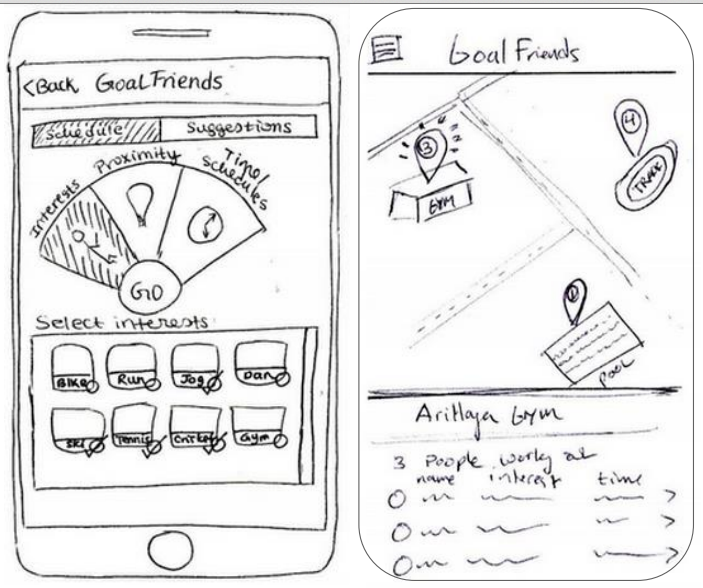 <Back GoalFriends
Schedule Suggestions
Interests Proximity Time/
Schedules
GO
Select interests
Bike Run Jog Dan
Ski Tennis Cricket Gym
Goal Friends
3
GYM
4
TRACK
1
POOL
Gym
3 People at
name interest time